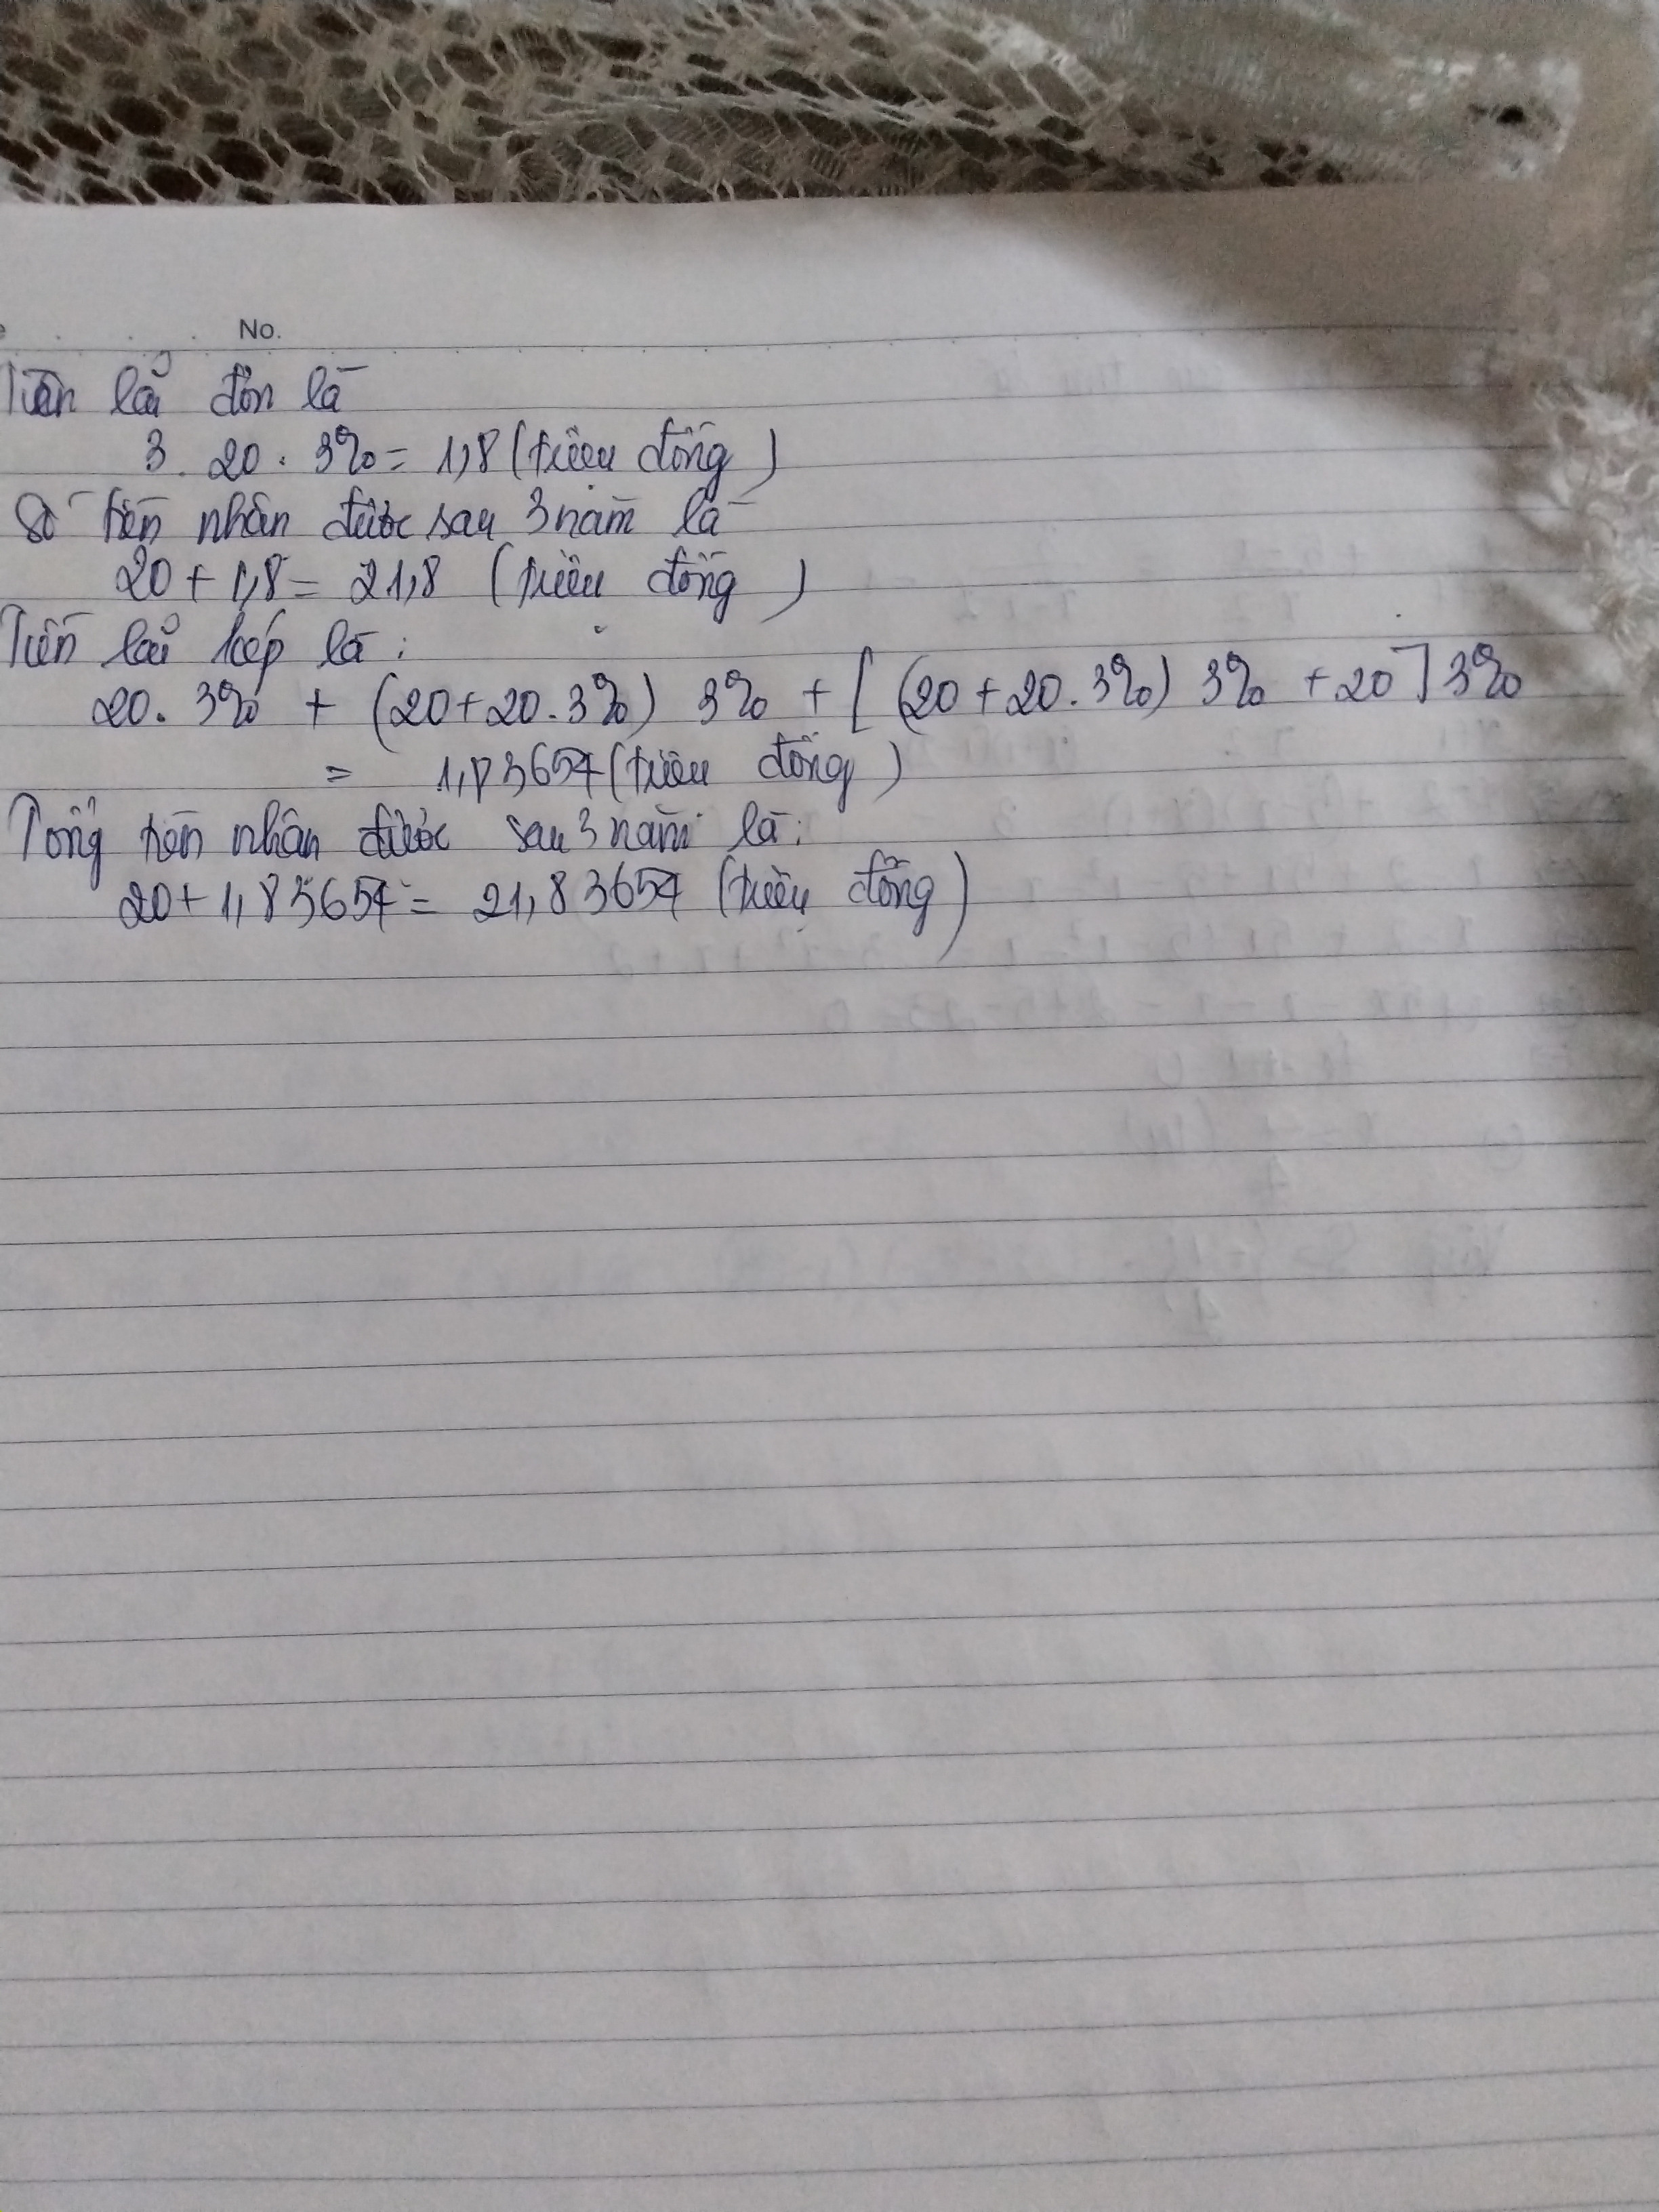 No.
Tiền lãi đơn là
3. 20. 3% = 1,8 (triệu đồng)
Số tiền nhận được sau 3 năm là
20 + 1,8 = 21,8 (triệu đồng)
Tiền lãi kép là:
20. 3% + (20+20.3%) 3% + [(20+20.3%) 3% +20] 3%
= 1,83654 (triệu đồng)
Tổng tiền nhận được sau 3 năm là:
20+1,83654 = 21,83654 (triệu đồng)